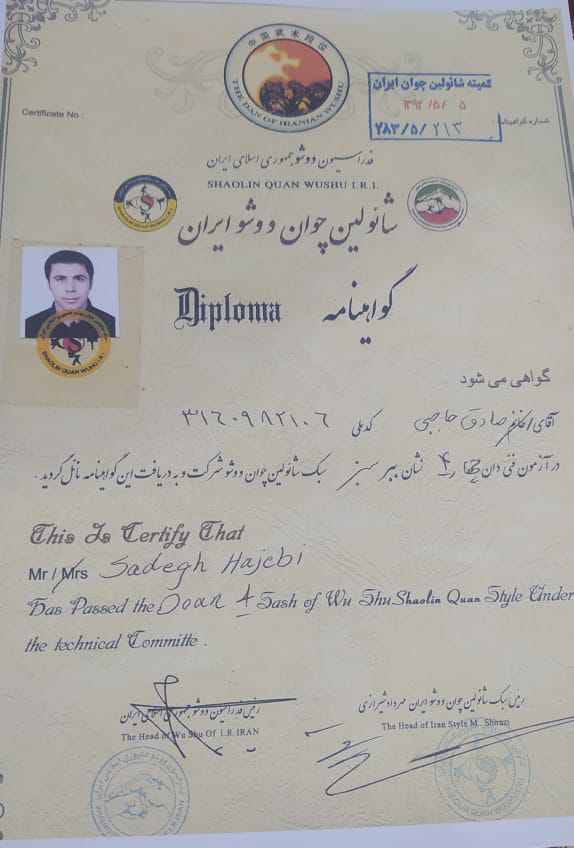 中国武术段位
THE DAN OF IRANIAN WUSHU
کمیته شائولین چوان ایران
۱۳۹۲/۵/۵
۲۸۳/۵/۲۱۳
Certificate No :
شماره گواهینامه :
فدراسیون ووشو جمهوری اسلامی ایران
SHAOLIN QUAN WUSHU I.R.I.
شائولین چوان ووشو ایران
Diploma گواهینامه
SHAOLIN QUAN WUSHU I.R.I
گواهی می شود
آقای/خانم صادق حاجبی کدملی ۳۱۶۰۹۸۲۱۰۶
در آزمون فنی دان چهار ۴ نشان ببر سبز سبک شائولین چوان ووشو شرکت و به دریافت این گواهینامه نائل گردید .
This Is Certify That
Mr / Mrs Sadegh Hajebi
Has Passed the Doan 4 Sash of Wu Shu Shaolin Quan Style Under
the technical Committe .
رئیس فدراسیون ووشو جمهوری اسلامی ایران
The Head of Wu Shu Of I.R IRAN
رئیس سبک شائولین چوان ووشو ایران مهرداد شیرازی
The Head of Iran Style M. Shirazi